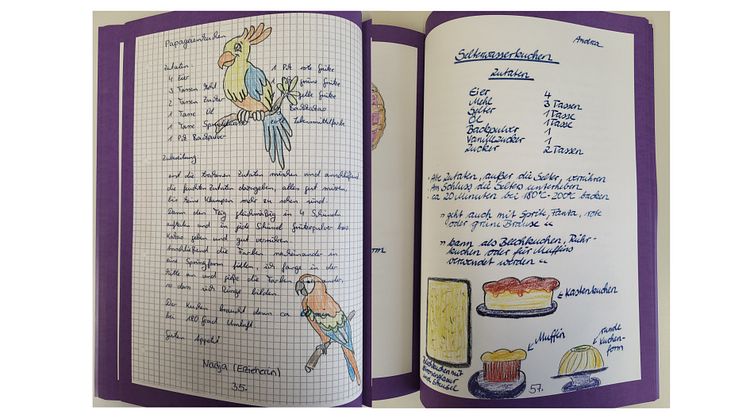 Papageienkuchen
Zutaten
4 Eier
3 Tassen Mehl
2 Tassen Zucker
1 Tasse Öl
1 Tasse
1 Pck Backpulver
1 Pck rote Grütze
1 Pck grüne Grütze
gelbe Grütze
Backkakao
Lebensmittelfarbe
Zubereitung
und die trockenen Zutaten mischen und anschließend
die feuchten Zutaten dazugeben, alles gut mixen,
bis keine Klumpen mehr zu sehen sind.
Dann den Teig gleichmäßig in 4 Schüsseln
aufteilen und in jede Schüssel Götterpulver bzw.
Kakao geben und gut verrühren.
Anschließend die Farben nacheinander in
eine Springform füllen, wir fangen in der
Mitte an und gieße die Farben
so dass wir Ringe bilden.
Der Kuchen braucht dann ca.
bei 180 Grad Umluft.
Guten Appetit
Nadja (Erzieherin)
35.
Andrea
Selterwasserkuchen
Zutaten
Eier 4
Mehl 3 Tassen
Selter 1 Tasse
Öl 1 Tasse
Backpulver 1
Vanillezucker 1
Zucker 2 Tassen
· Alle Zutaten, außer die Selter, verrühren
· Am Schluss die Selters unterheben
· ca 20 Minuten bei 180°C - 200°C backen
" geht auch mit Sprite, Fanta, rote
oder grüne Brause "
" kann als Blechkuchen, Rühr-
kuchen oder für Muffins
verwendet werden "
Kastenkuchen
Muffin
runde
Kuchen-
form
Blechkuchen mit
und Streusel
57.